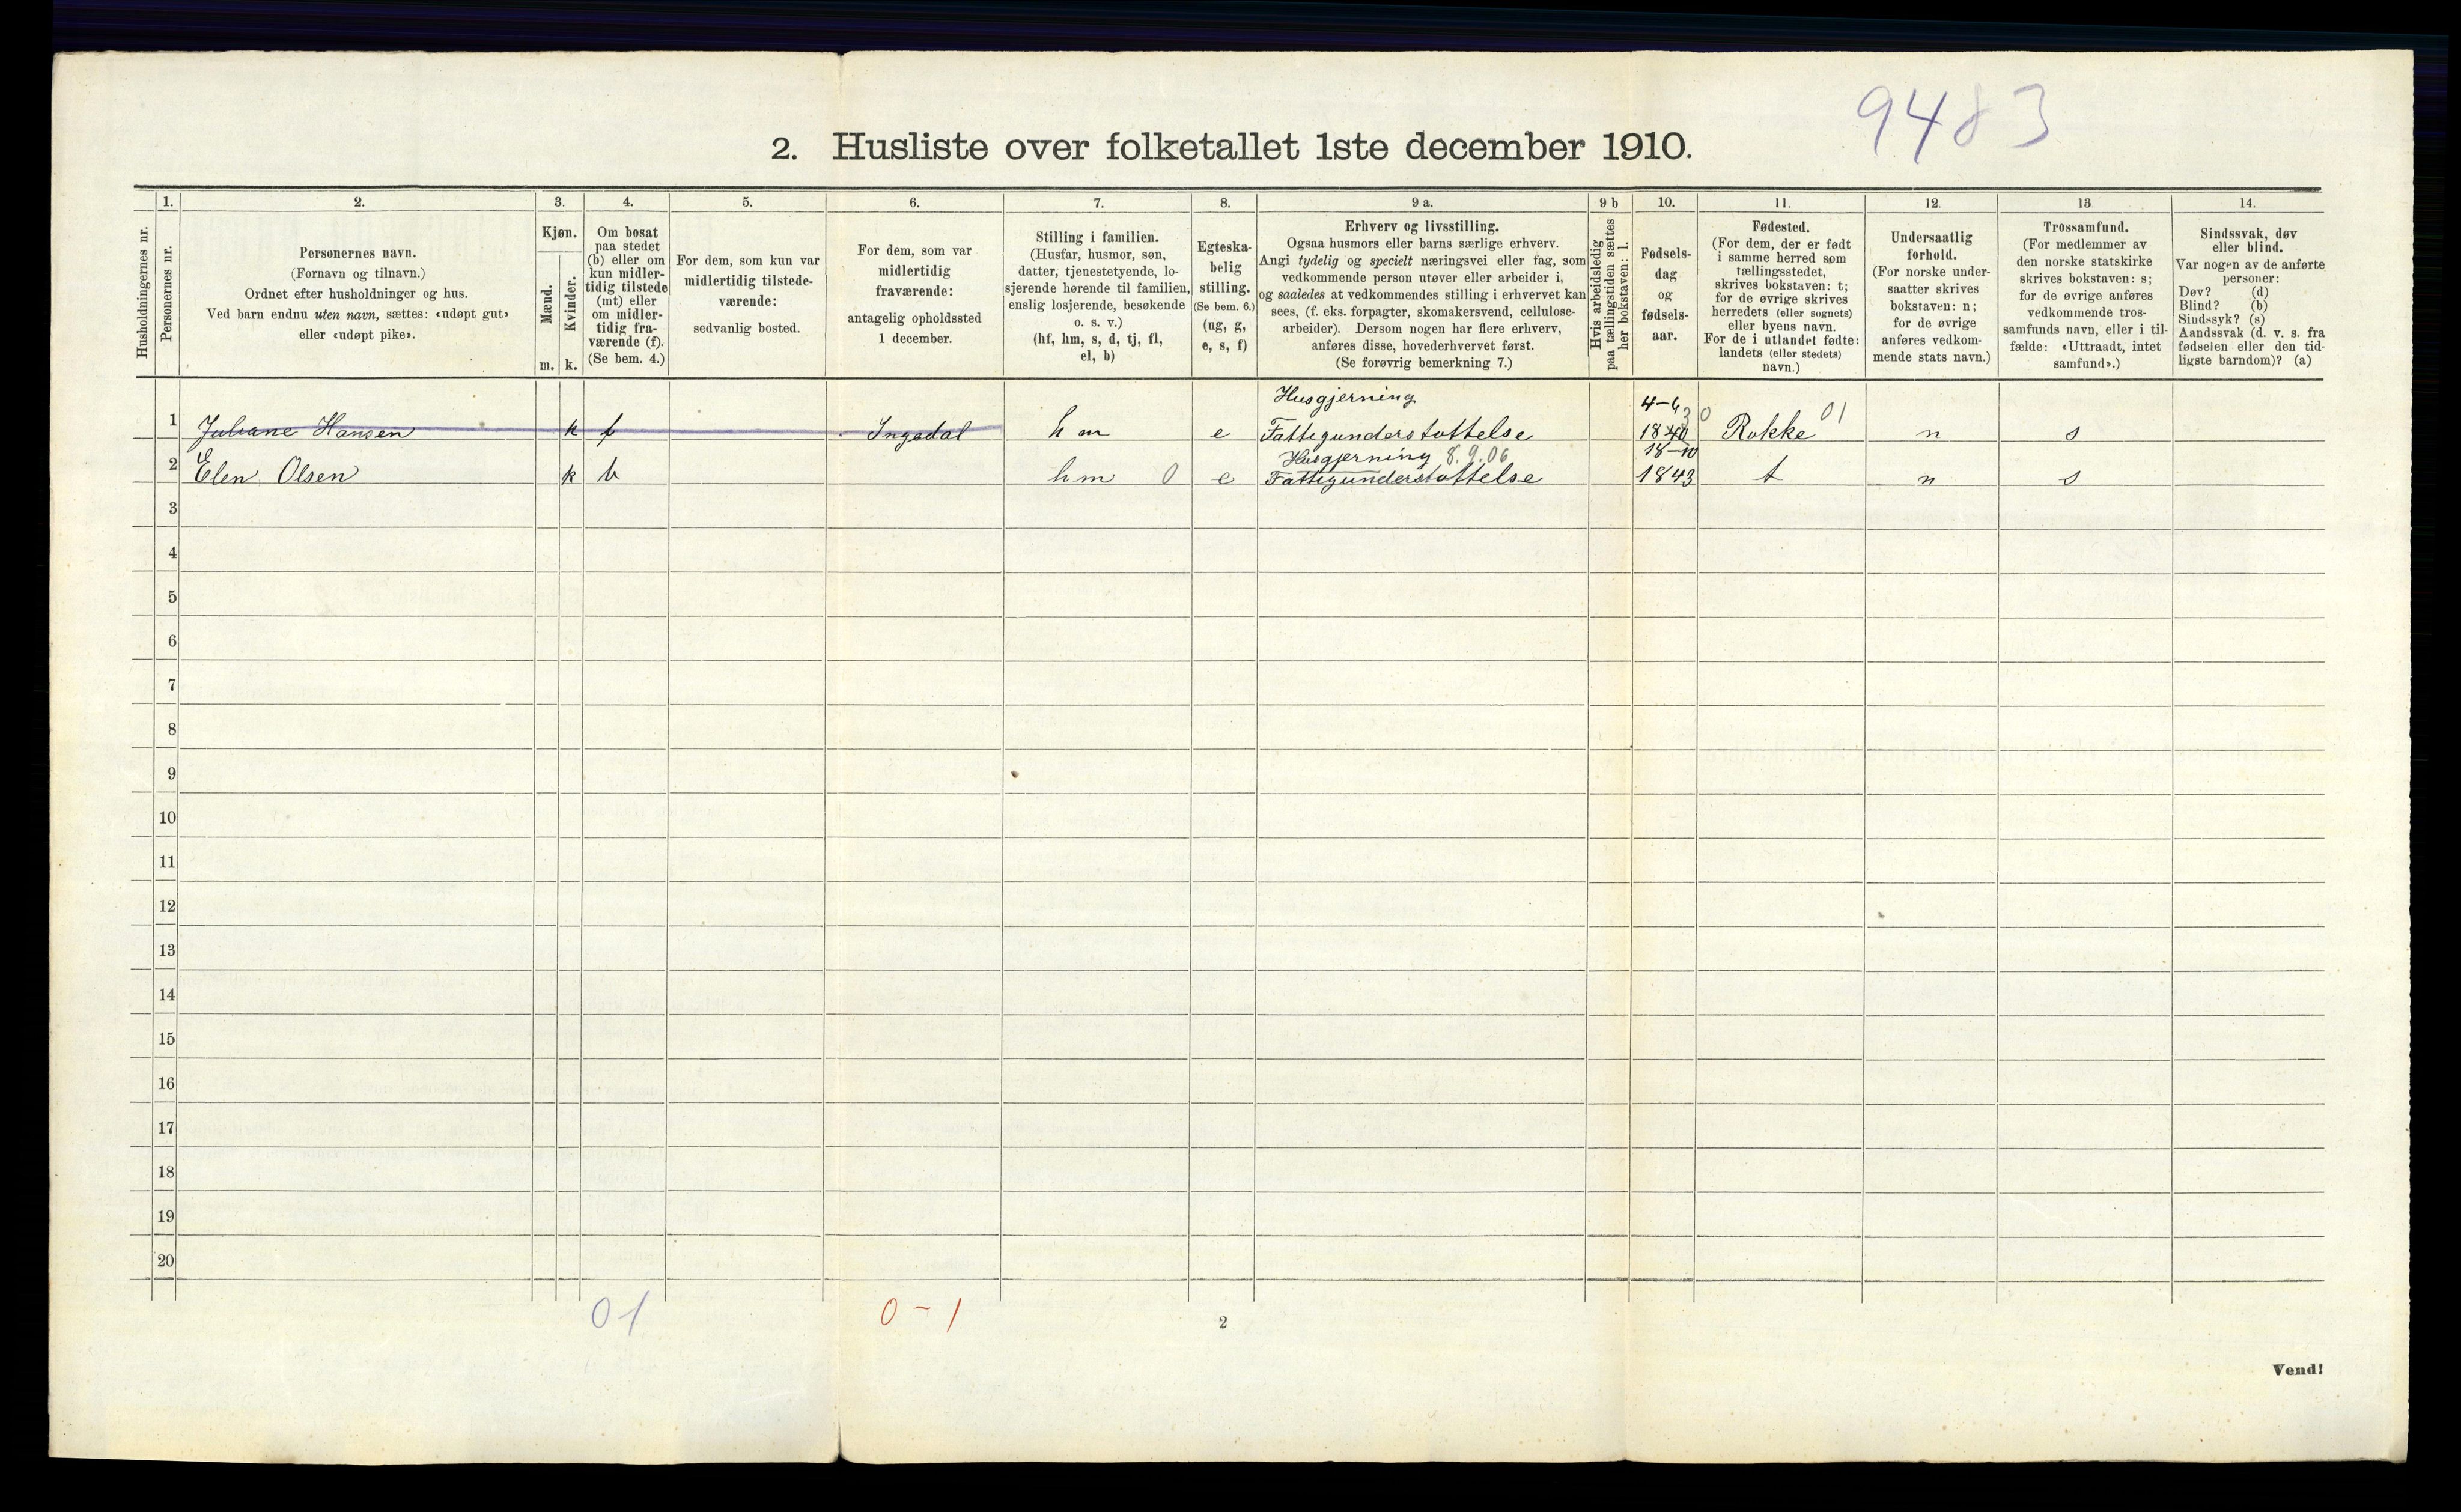 9483
2. Husliste over folketallet 1ste december 1910.
Husholdningernes nr.
1.
Personernes nr.
2.
Personernes navn.
(Fornavn og tilnavn.)
Ordnet efter husholdninger og hus.
Ved barn endnu uten navn, sættes: «udøpt gut»
eller «udøpt pike».
3.
Kjøn.
Mænd.
Kvinder.
m. k.
4.
Om bosat
paa stedet
(b) eller om
kun midler-
tidig tilstede
(mt) eller
om midler-
tidig fra-
værende (f).
(Se bem. 4.)
5.
For dem, som kun var
midlertidig tilstede-
værende:
sedvanlig bosted.
6.
For dem, som var
midlertidig
fraværende:
antagelig opholdssted
1 december.
7.
Stilling i familien.
(Husfar, husmor, søn,
datter, tjenestetyende, lo-
sjerende hørende til familien,
enslig losjerende, besøkende
o. s. v.)
(hf, hm, s, d, tj, fl,
el, b)
8.
Egteska-
belig
stilling.
(Se bem. 6.)
(ug, g,
e, s, f)
9 a.
Erhverv og livsstilling.
Ogsaa husmors eller barns særlige erhverv.
Angi tydelig og specielt næringsvei eller fag, som
vedkommende person utøver eller arbeider i,
og saaledes at vedkommendes stilling i erhvervet kan
sees, (f. eks. forpagter, skomakersvend, cellulose-
arbeider). Dersom nogen har flere erhverv,
anføres disse, hovederhvervet først.
(Se forøvrig bemerkning 7.)
9 b
Hvis arbeidsledig
paa tællingstiden sættes
her bokstaven: l.
10.
Fødsels-
dag
og
fødsels-
aar.
11.
Fødested.
(For dem, der er født
i samme herred som
tællingsstedet,
skrives bokstaven: t;
for de øvrige skrives
herredets (eller sognets)
eller byens navn.
For de i utlandet fødte:
landets (eller stedets)
navn.)
12.
Undersaatlig
forhold.
(For norske under-
saatter skrives
bokstaven: n;
for de øvrige
anføres vedkom-
mende stats navn.)
13
Trossamfund.
(For medlemmer av
den norske statskirke
skrives bokstaven: s;
for de øvrige anføres
vedkommende tros-
samfunds navn, eller i til-
fælde: «Uttraadt, intet
samfund».)
14.
Sindssvak, døv
eller blind.
Var nogen av de anførte
personer:
Døv? (d)
Blind? (b)
Sindssyk? (s)
Aandssvak (d. v. s. fra
fødselen eller den tid-
ligste barndom)? (a)
Husgjerning 4-6
1 Juliane Hansen k f Ingedal hm e Fattigunderstøttelse 1840 30 Rokke 01 n s
Husgjerning 8.9.06 18-10
2 Elen Olsen k b hm 0 e Fattigunderstøttelse 1843 t n s
3
4
5
6
7
8
9
10
11
12
13
14
15
16
17
18
19
20
01 0-1
2
Vend!